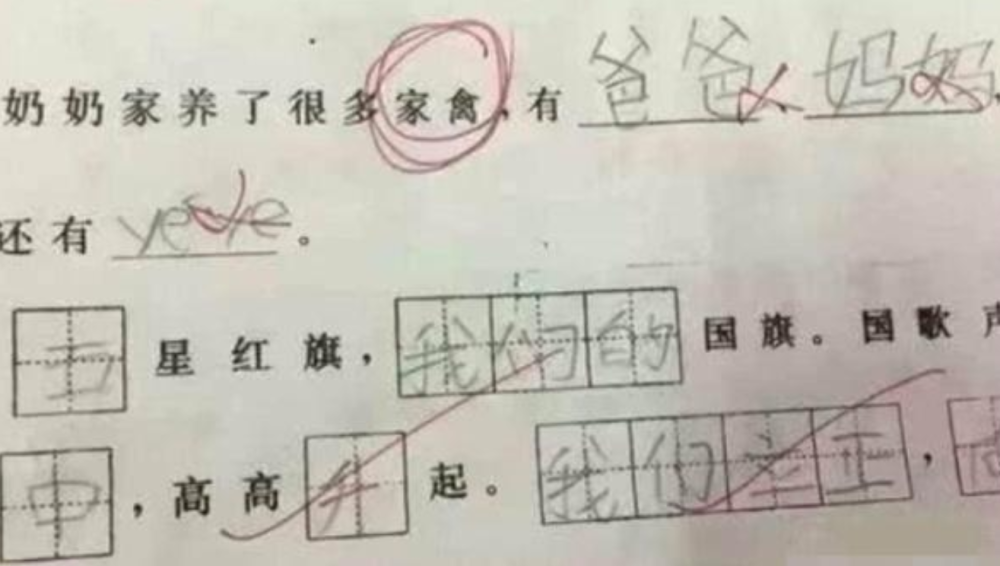 奶奶家养了很多家禽，有爸爸、妈妈
还有yeye。
五星红旗，我们的国旗。国歌声
中，高高升起。我们立正，